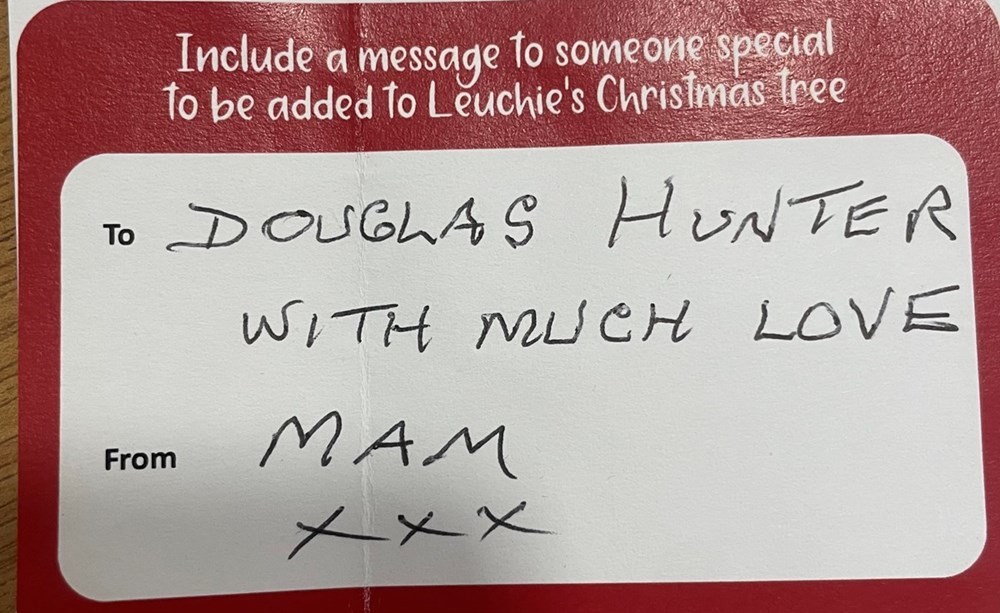 Include a message to someone special
to be added to Leuchie's Christmas tree
To DOUGLAS HUNTER
WITH MUCH LOVE
From MAM
xxx